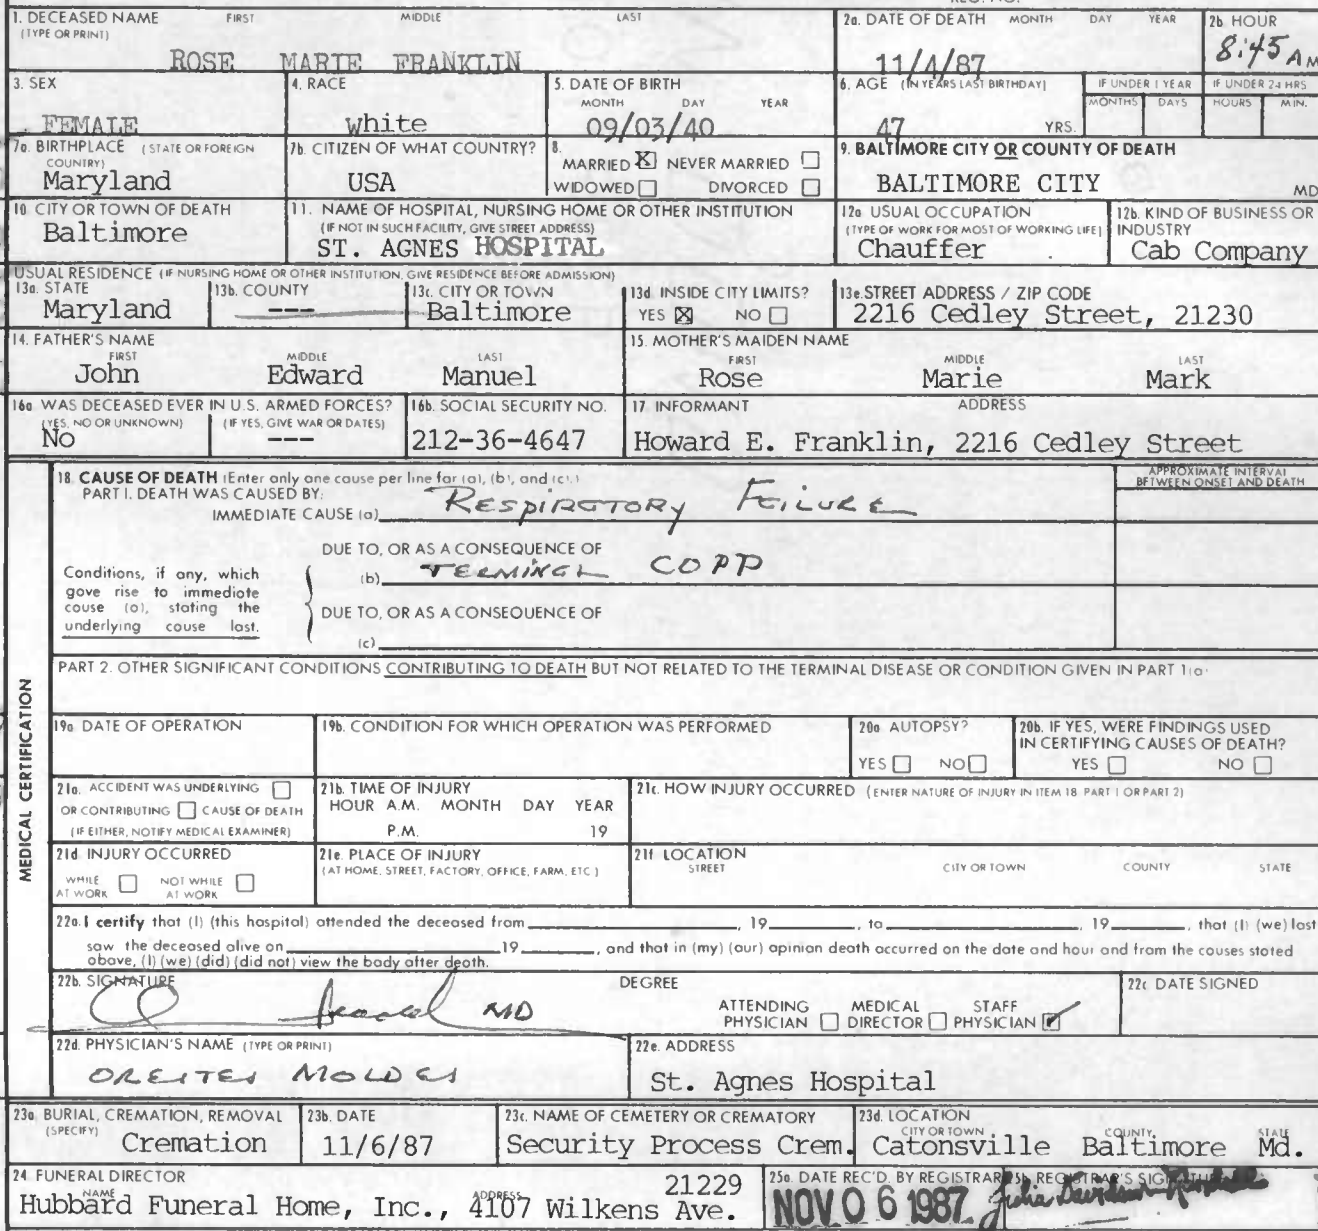 1. DECEASED NAME FIRST MIDDLE LAST
(TYPE OR PRINT)
ROSE MARIE FRANKLIN
2a. DATE OF DEATH MONTH DAY YEAR
11/4/87
2b HOUR
8:45 AM
3. SEX
FEMALE
4. RACE
white
5. DATE OF BIRTH
MONTH DAY YEAR
09/03/40
6. AGE (IN YEARS LAST BIRTHDAY)
47 YRS.
IF UNDER 1 YEAR
MONTHS DAYS
IF UNDER 24 HRS
HOURS MIN.
7a. BIRTHPLACE (STATE OR FOREIGN
COUNTRY)
Maryland
7b. CITIZEN OF WHAT COUNTRY?
USA
8.
MARRIED ☒ NEVER MARRIED ☐
WIDOWED ☐ DIVORCED ☐
9. BALTIMORE CITY OR COUNTY OF DEATH
BALTIMORE CITY MD
10 CITY OR TOWN OF DEATH
Baltimore
11. NAME OF HOSPITAL, NURSING HOME OR OTHER INSTITUTION
(IF NOT IN SUCH FACILITY, GIVE STREET ADDRESS)
ST. AGNES HOSPITAL
12a USUAL OCCUPATION
(TYPE OF WORK FOR MOST OF WORKING LIFE)
Chauffer
12b. KIND OF BUSINESS OR
INDUSTRY
Cab Company
USUAL RESIDENCE (IF NURSING HOME OR OTHER INSTITUTION, GIVE RESIDENCE BEFORE ADMISSION)
13a. STATE
Maryland
13b. COUNTY
---
13c. CITY OR TOWN
Baltimore
13d. INSIDE CITY LIMITS?
YES ☒ NO ☐
13e. STREET ADDRESS / ZIP CODE
2216 Cedley Street, 21230
14. FATHER'S NAME
FIRST MIDDLE LAST
John Edward Manuel
15. MOTHER'S MAIDEN NAME
FIRST MIDDLE LAST
Rose Marie Mark
16a WAS DECEASED EVER IN U.S. ARMED FORCES?
(YES, NO OR UNKNOWN) (IF YES, GIVE WAR OR DATES)
No ---
16b. SOCIAL SECURITY NO.
212-36-4647
17. INFORMANT ADDRESS
Howard E. Franklin, 2216 Cedley Street
MEDICAL CERTIFICATION
18. CAUSE OF DEATH (Enter only one cause per line for (a), (b), and (c).)
APPROXIMATE INTERVAL
BETWEEN ONSET AND DEATH
PART I. DEATH WAS CAUSED BY:
IMMEDIATE CAUSE (a) RESPIRATORY FAILURE
DUE TO, OR AS A CONSEQUENCE OF
(b) TERMINAL COPD
DUE TO, OR AS A CONSEQUENCE OF
(c)
Conditions, if any, which
gave rise to immediate
cause (a), stating the
underlying cause last.
PART 2. OTHER SIGNIFICANT CONDITIONS CONTRIBUTING TO DEATH BUT NOT RELATED TO THE TERMINAL DISEASE OR CONDITION GIVEN IN PART 1(a)
19a DATE OF OPERATION
19b. CONDITION FOR WHICH OPERATION WAS PERFORMED
20a AUTOPSY?
YES ☐ NO ☐
20b. IF YES, WERE FINDINGS USED
IN CERTIFYING CAUSES OF DEATH?
YES ☐ NO ☐
21a. ACCIDENT WAS UNDERLYING ☐
OR CONTRIBUTING ☐ CAUSE OF DEATH
(IF EITHER, NOTIFY MEDICAL EXAMINER)
21b. TIME OF INJURY
HOUR A.M. MONTH DAY YEAR
P.M. 19
21c. HOW INJURY OCCURRED (ENTER NATURE OF INJURY IN ITEM 18 PART 1 OR PART 2)
21d INJURY OCCURRED
WHILE AT WORK ☐ NOT WHILE AT WORK ☐
21e. PLACE OF INJURY
(AT HOME, STREET, FACTORY, OFFICE, FARM, ETC)
21f LOCATION
STREET CITY OR TOWN COUNTY STATE
22a. I certify that (I) (this hospital) attended the deceased from ____, 19____, to ____, 19____, that (I) (we) last
saw the deceased alive on ____ 19____, and that in (my) (our) opinion death occurred on the date and hour and from the causes stated
above, (I) (we) (did) (did not) view the body after death.
22b. SIGNATURE
MD
DEGREE
ATTENDING PHYSICIAN ☐ MEDICAL DIRECTOR ☐ STAFF PHYSICIAN ☑
22c DATE SIGNED
22d. PHYSICIAN'S NAME (TYPE OR PRINT)
22e. ADDRESS
St. Agnes Hospital
23a BURIAL, CREMATION, REMOVAL
(SPECIFY)
Cremation
23b. DATE
11/6/87
23c. NAME OF CEMETERY OR CREMATORY
Security Process Crem.
23d. LOCATION
CITY OR TOWN COUNTY STATE
Catonsville Baltimore Md.
24 FUNERAL DIRECTOR
NAME ADDRESS
21229
Hubbard Funeral Home, Inc., 4107 Wilkens Ave.
25a. DATE REC'D. BY REGISTRAR
NOV 06 1987
25b. REGISTRAR'S SIGNATURE